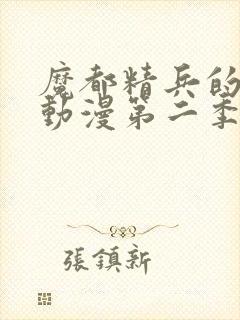 魔都精兵的
動漫第二季
張鎮新